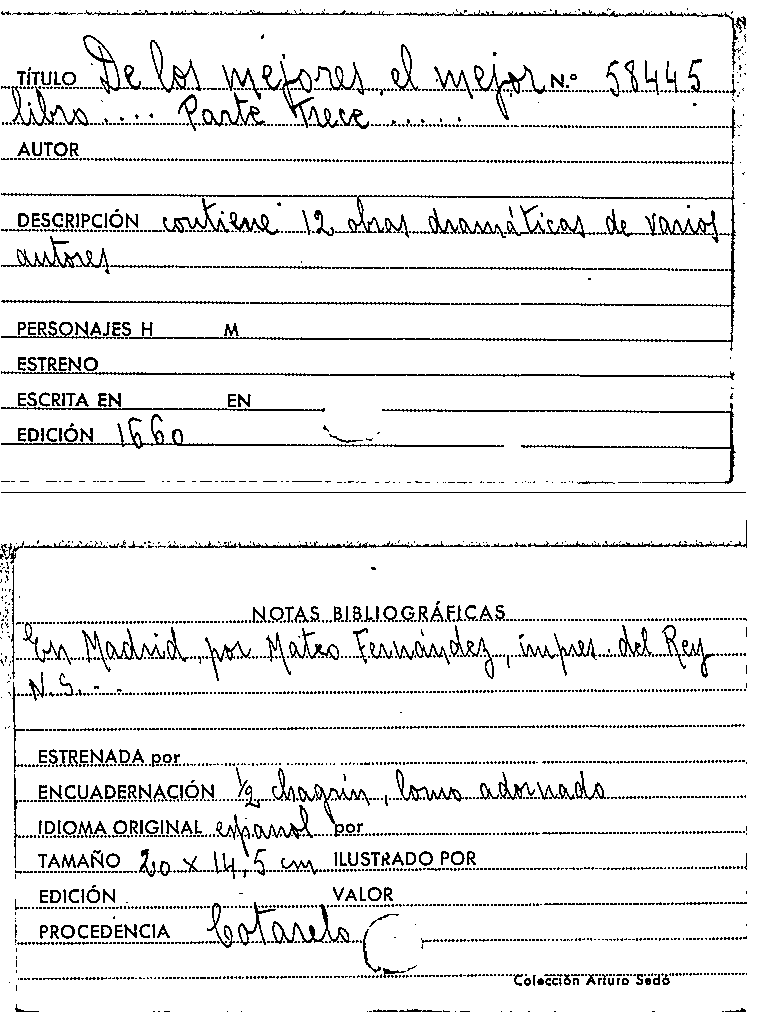 TÍTULO De los mejores, el mejor N.º 58445
libro.... Parte Trece......
AUTOR
DESCRIPCIÓN contiene 12 obras dramáticas de varios
autores
PERSONAJES H M
ESTRENO
ESCRITA EN EN
EDICIÓN 1660
NOTAS BIBLIOGRÁFICAS
En Madrid, por Mateo Fernández, impres. del Rey
N.S. ...
ESTRENADA por
ENCUADERNACIÓN 1/2 chagrín, lomo adornado
IDIOMA ORIGINAL español por
TAMAÑO 20 x 14,5 cm ILUSTRADO POR
EDICIÓN VALOR
PROCEDENCIA Cotarelo
Colección Arturo Sedó